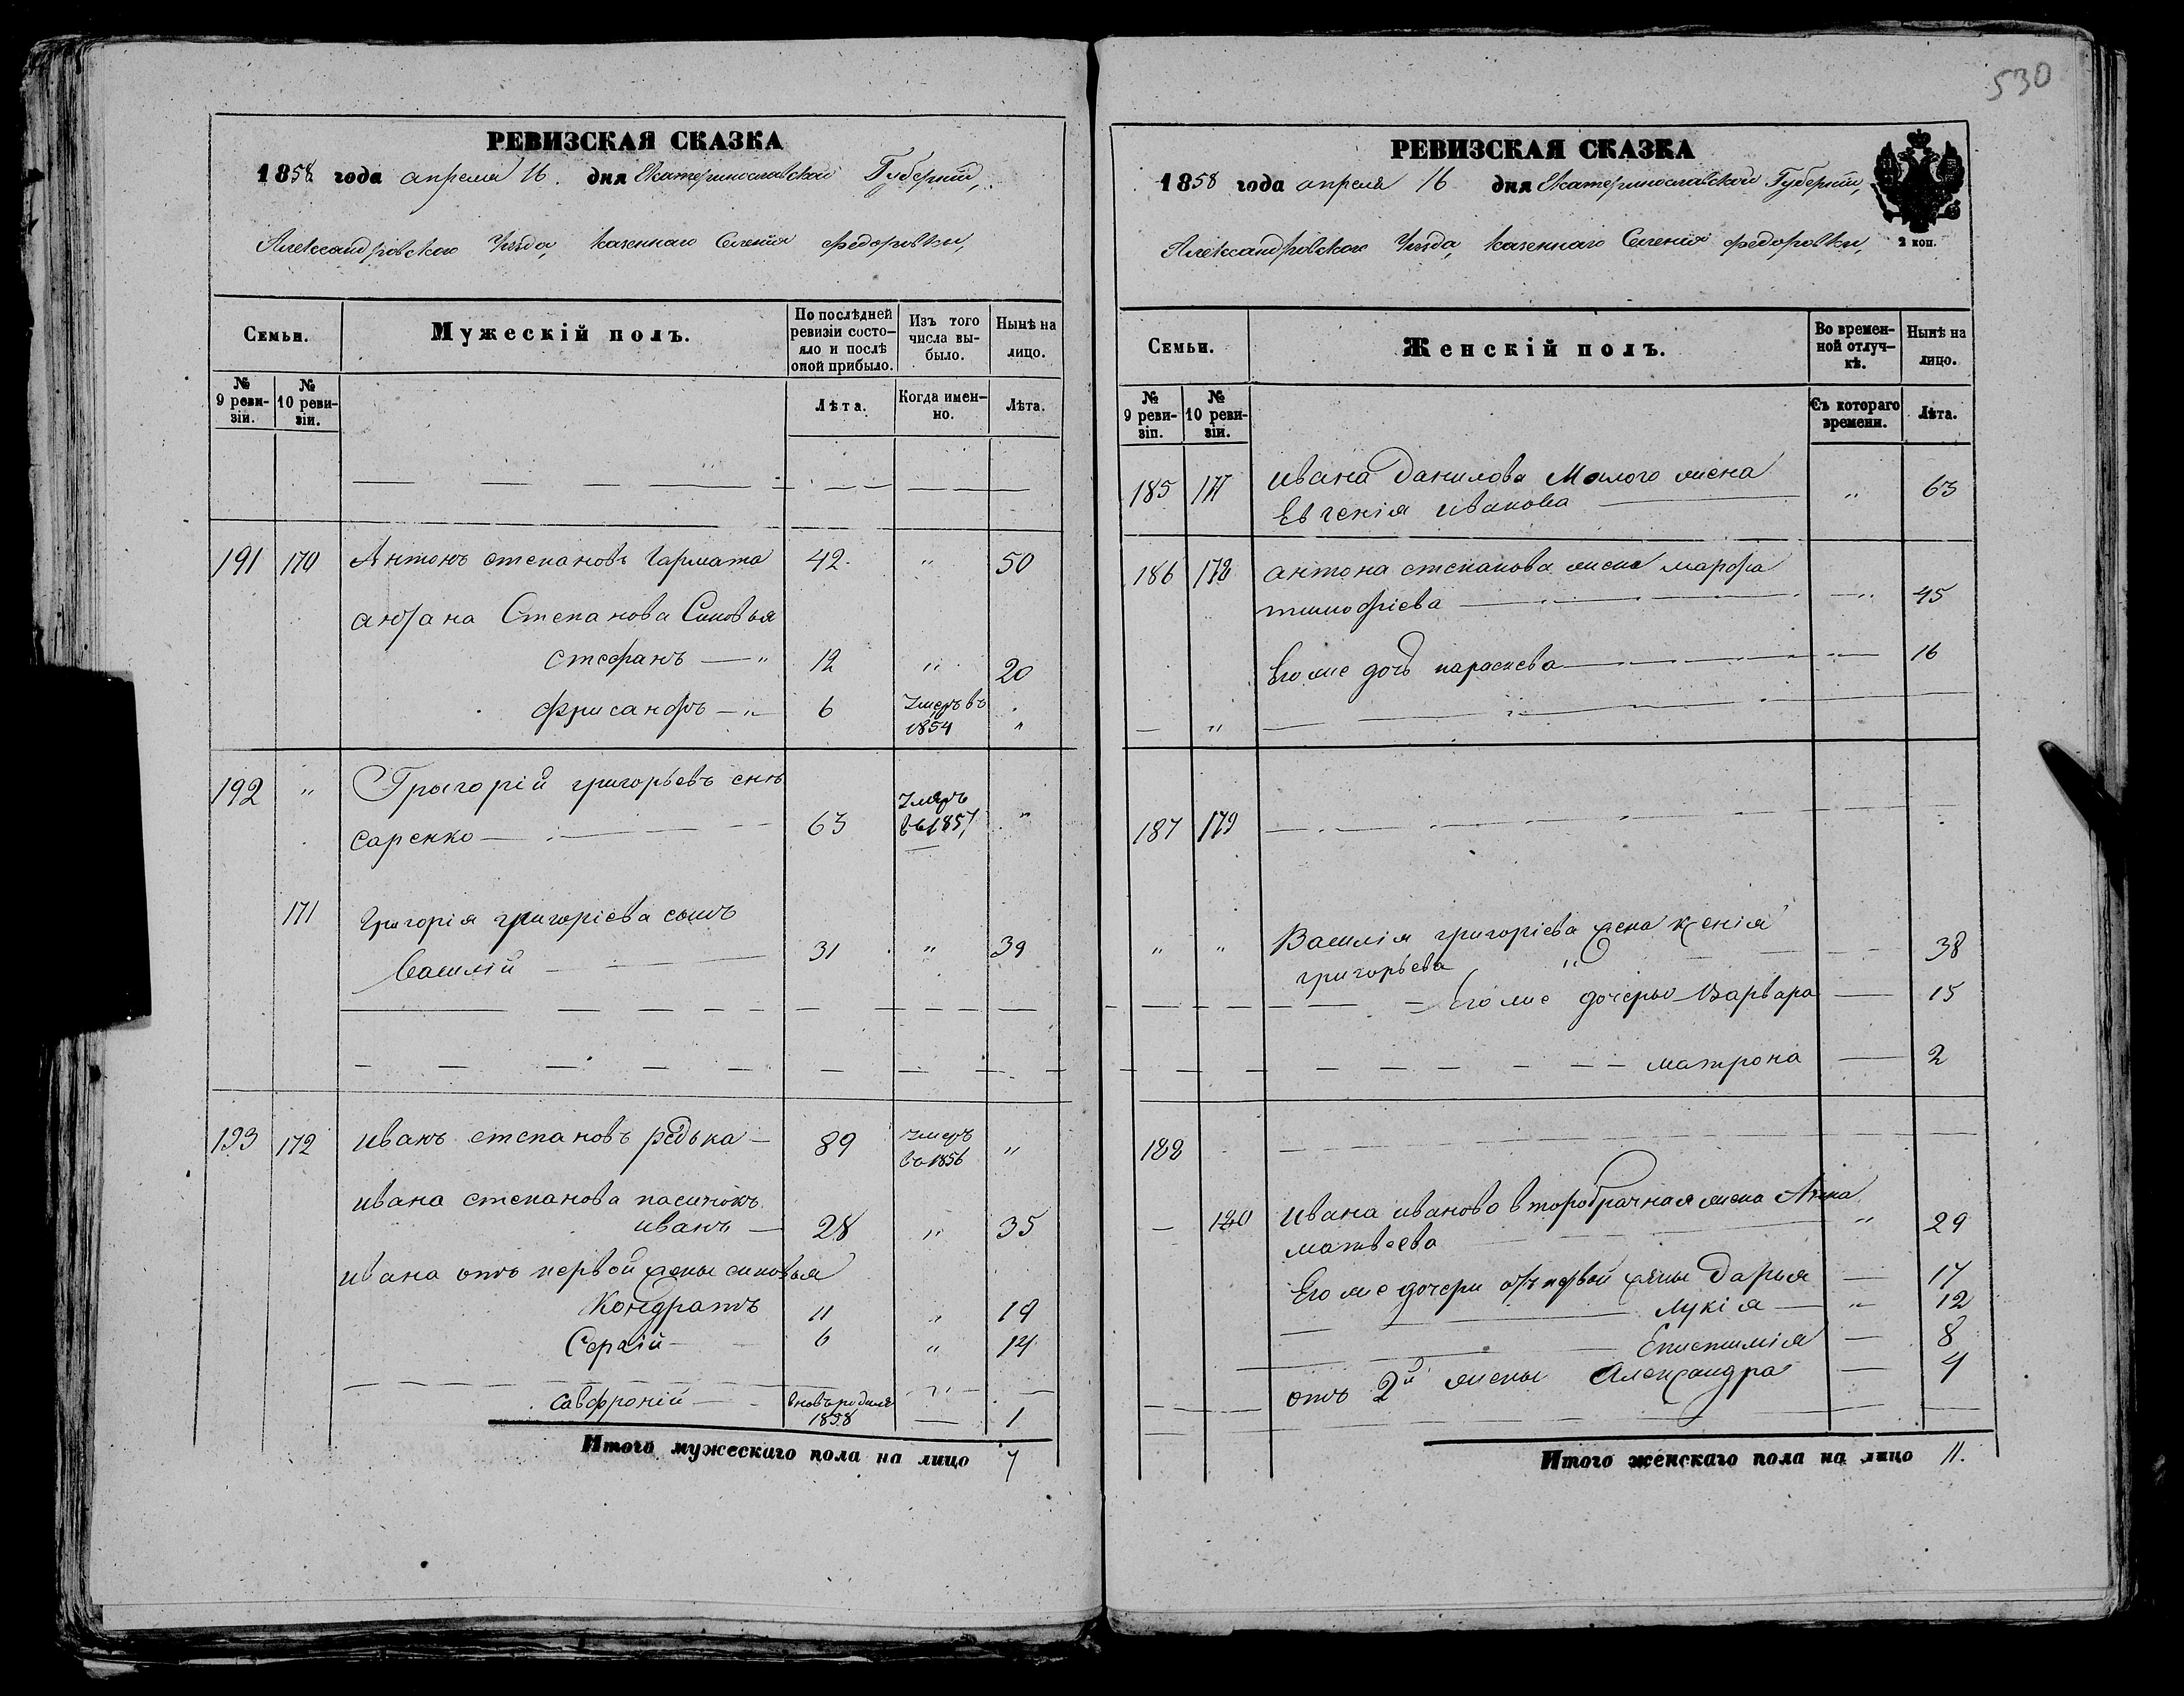 530
РЕВИЗСКАЯ СКАЗКА
1858 года апреля 16. дня Екатеринославской Губернии,
Александровского Уезда, казеннаго Селения федоровки,
Семьи.
Мужескій полъ.
По послѣдней ревизіи состо-
яло и послѣ
оной прибыло.
Изъ того
числа вы-
было.
Нынѣ на
лицо.
№
9 реви-
зіи.
№
10 реви-
зіи.
Лѣта.
Когда имен-
но.
Лѣта.
191 170 Антонъ степановъ Гармата 42 " 50
Антона Степанова Сыновья
стефанъ — " 12 " 20
6 Умеръ въ
1854 "
192 " Григорій григорьевъ снъ
саренко 63 Умеръ
въ 1857 "
171 Григорія григоріева сынъ
Василій 31 " 39
193 172 иванъ степановъ редька — 89 умеръ
въ 1856 "
ивана степанова пасынокъ
иванъ — 28 " 35
ивана отъ первой жены сыновья
Кондратъ 11 " 19
Сергій 6 " 14
савфроній вновь родился
1858 — 1
Итого мужескаго пола на лицо 7
РЕВИЗСКАЯ СКАЗКА
1858 года апреля 16 дня Екатеринославской Губернии,
Александровского Уезда, казеннаго Селения федоровки,
2 коп.
Семьи.
Женскій полъ.
Во времен-
ной отлуч-
кѣ.
Нынѣ на
лицо.
№
9 реви-
зіи.
№
10 реви-
зіи.
Съ котораго
времени.
Лѣта.
185 177 ивана Данилова Малого жена
Евгенія иванова " 63
186 178 антона степанова жена марфа
тимофіева " 45
Его же дочь параскева 16
187 179
" " Василія григоріева жена ксенія
григорьева " 38
Его же дочерьи Варвара — 15
матрона — 2
188
180 ивана иванова второбрачная жена Анна
матвеева " 29
Его же дочери отъ первой жены Дарья — 17
лукія — " 12
Епистимія — 8
отъ 2й жены Александра — 4
Итого женскаго пола на лицо 11.